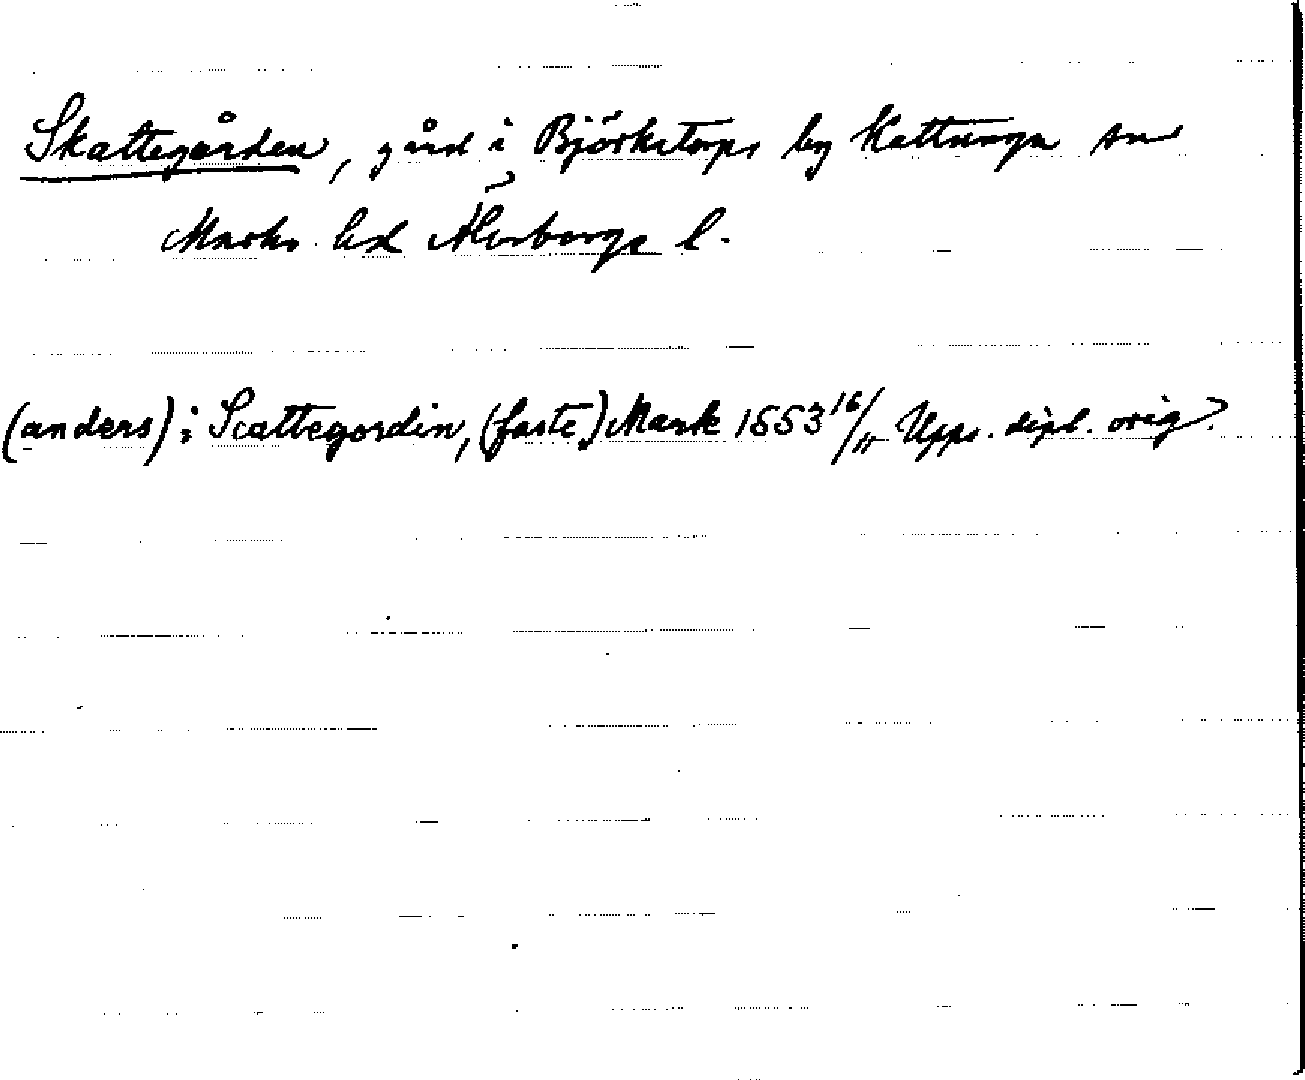 Skattegården, gård i Björketorps by Kattunga sn
Marks hd Älvsborgs l.
(anders) i Scattegordin, (faste) Mark 1553 16/11 Upps. dipl. orig?